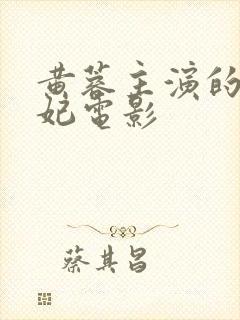 黄蓉主演的
妃电影
蔡其昌